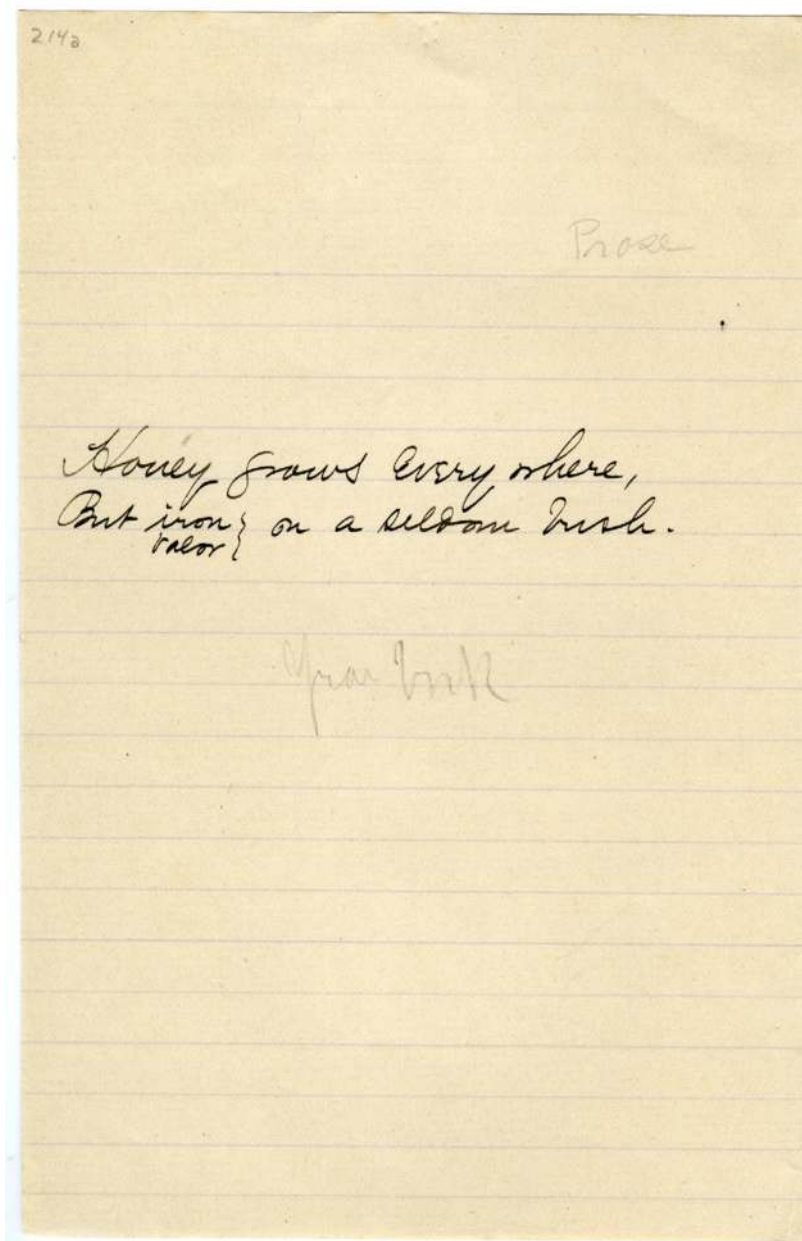 214a
Prose
Honey grows every where,
But iron } on a seldom bush.
valor }
Year book